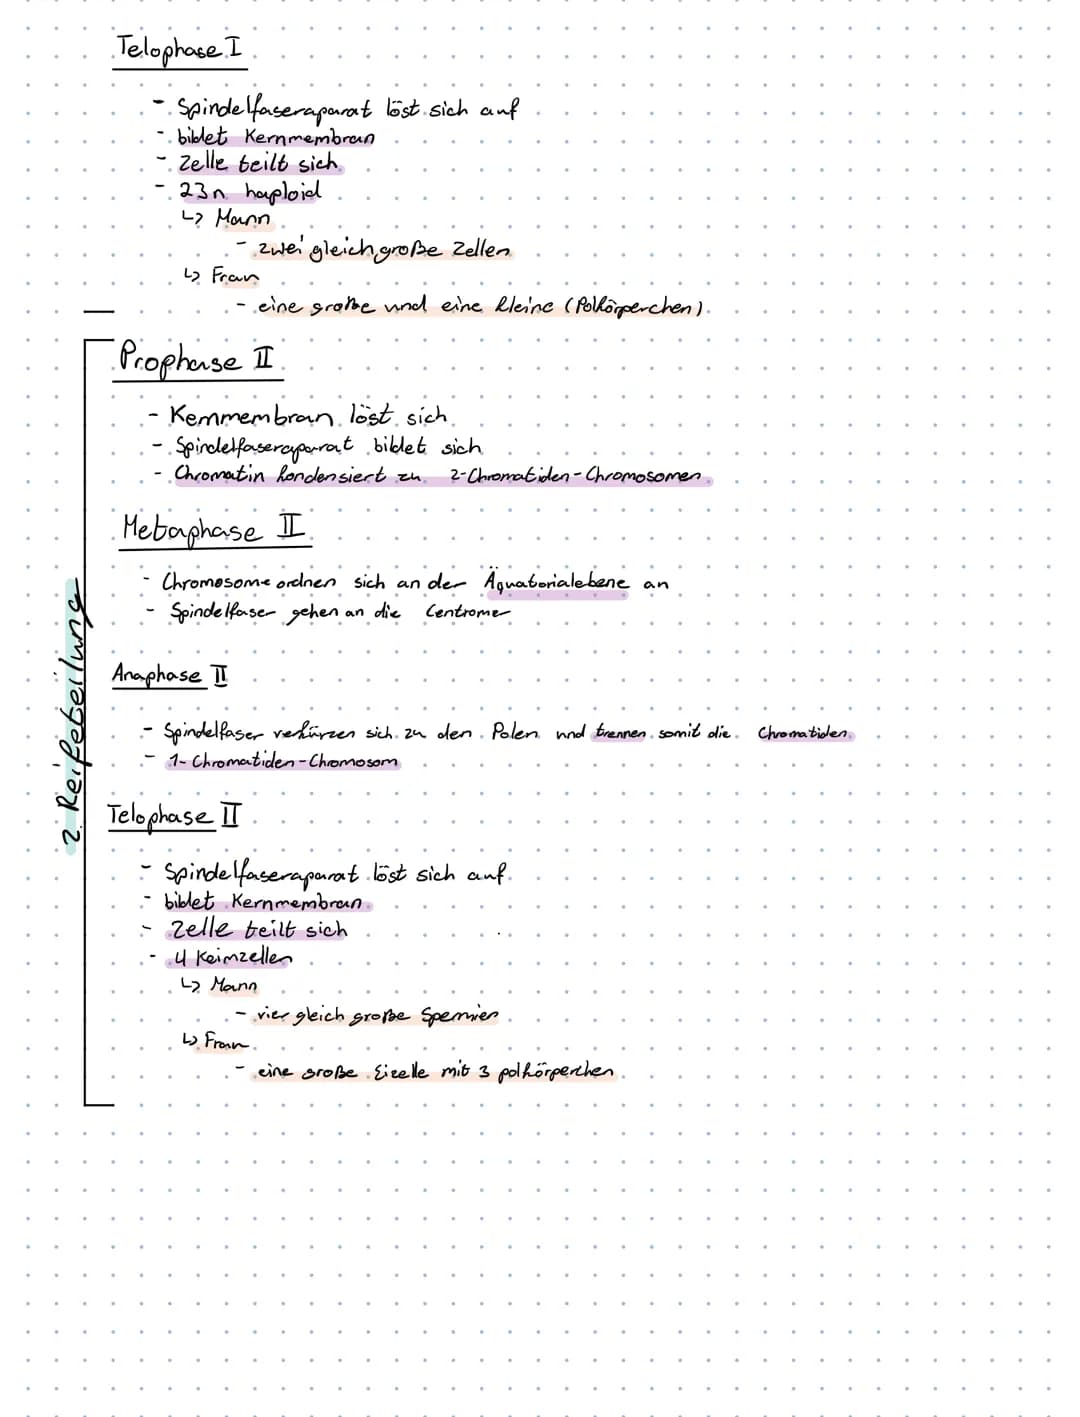 Telophase I
- Spindelfaseraparat löst sich auf
- bildet Kernmembran
- Zelle teilt sich
- 23n haploid
↳ Mann
- zwei gleich große Zellen
↳ Frau
- eine große und eine kleine (Polkörperchen)
2. Reifeteilung
Prophase II
- Kernmembran löst sich
- Spindelfaseraparat bildet sich
- Chromatin kondensiert zu 2-Chromatiden-Chromosomen
Metaphase II
- Chromosome ordnen sich an der Äquatorialebene an
- Spindelfaser gehen an die Centrome
Anaphase II
- Spindelfaser verkürzen sich zu den Polen und trennen somit die Chromatiden
- 1-Chromatiden-Chromosom
Telophase II
- Spindelfaseraparat löst sich auf
- bildet Kernmembran
- Zelle teilt sich
- 4 Keimzellen
↳ Mann
- vier gleich große Spermien
↳ Frau
- eine große Eizelle mit 3 polkörperchen